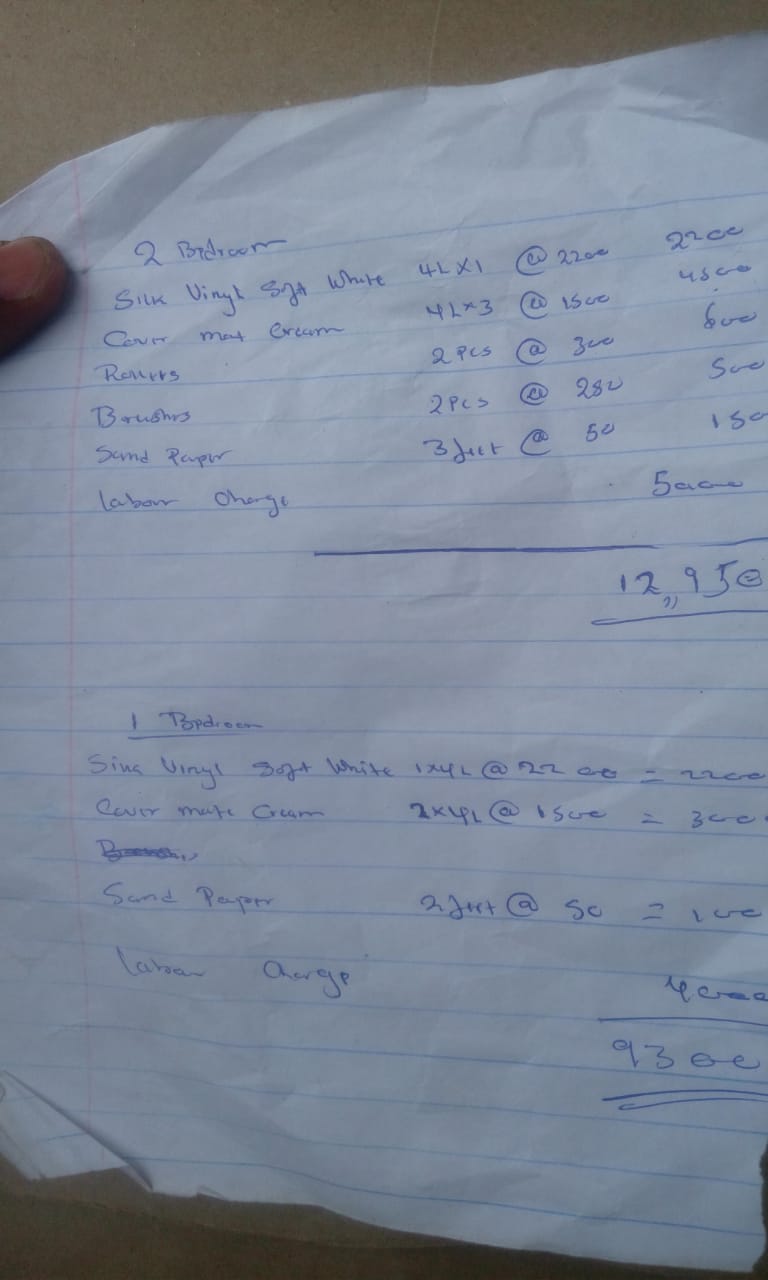 2 Bedroom
Silk Vinyl Soft White 4L x 1 @ 2200 2200
Cover mat Cream 4L x 3 @ 1500 4500
Rollers 2 Pcs @ 300 600
Brushes 2 Pcs @ 250 500
Sand Paper 3 feet @ 50 150
Labour Charge 5000
12,950
1 Bedroom
Silk Vinyl Soft White 1x4L @ 2200 = 2200
Cover mate Cream 2x4L @ 1500 = 3000
Sand Paper 2 feet @ 50 = 100
Labour Charge 4000
9300